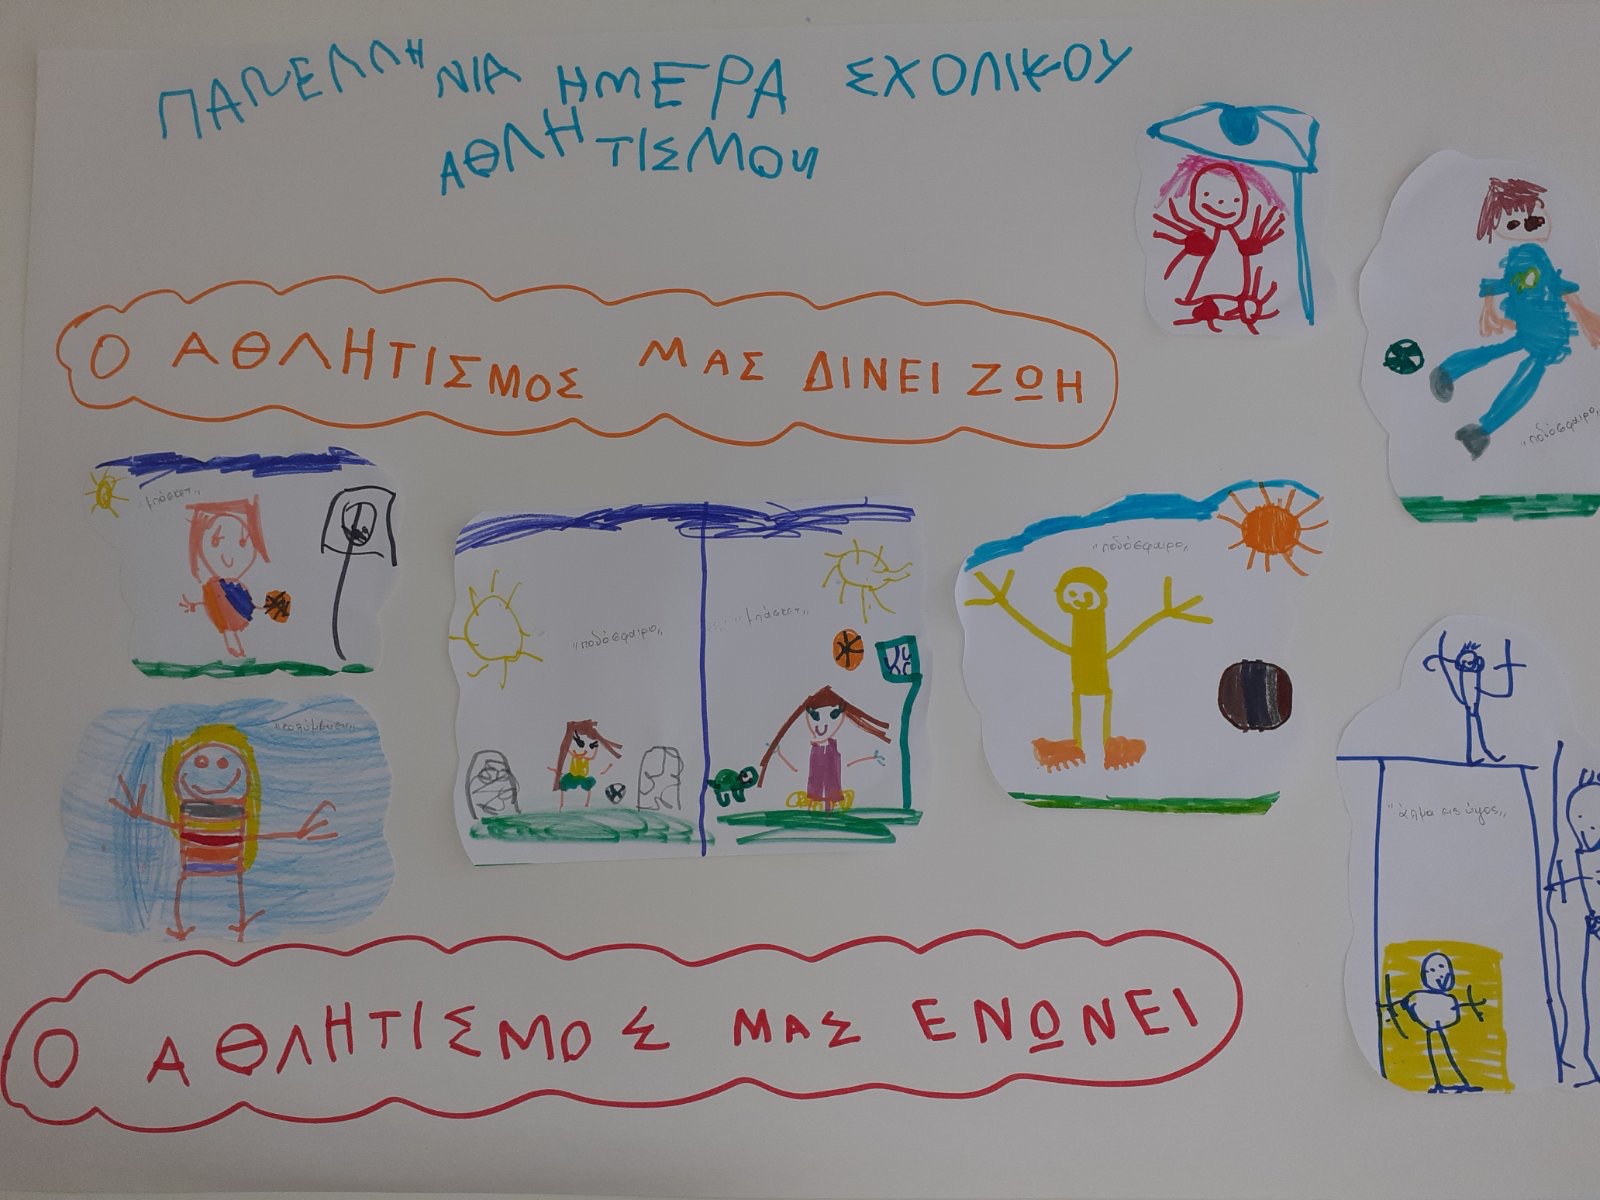 ΠΑΝΕΛΛΗΝΙΑ ΗΜΕΡΑ ΣΧΟΛΙΚΟΥ
ΑΘΛΗΤΙΣΜΟΥ
Ο ΑΘΛΗΤΙΣΜΟΣ ΜΑΣ ΔΙΝΕΙ ΖΩΗ
"ποδόσφαιρο"
"μπάσκετ"
"ποδόσφαιρο"
"μπάσκετ"
"ποδόσφαιρο"
"κολύμβηση"
"άλμα εις ύψος"
Ο ΑΘΛΗΤΙΣΜΟΣ ΜΑΣ ΕΝΩΝΕΙ